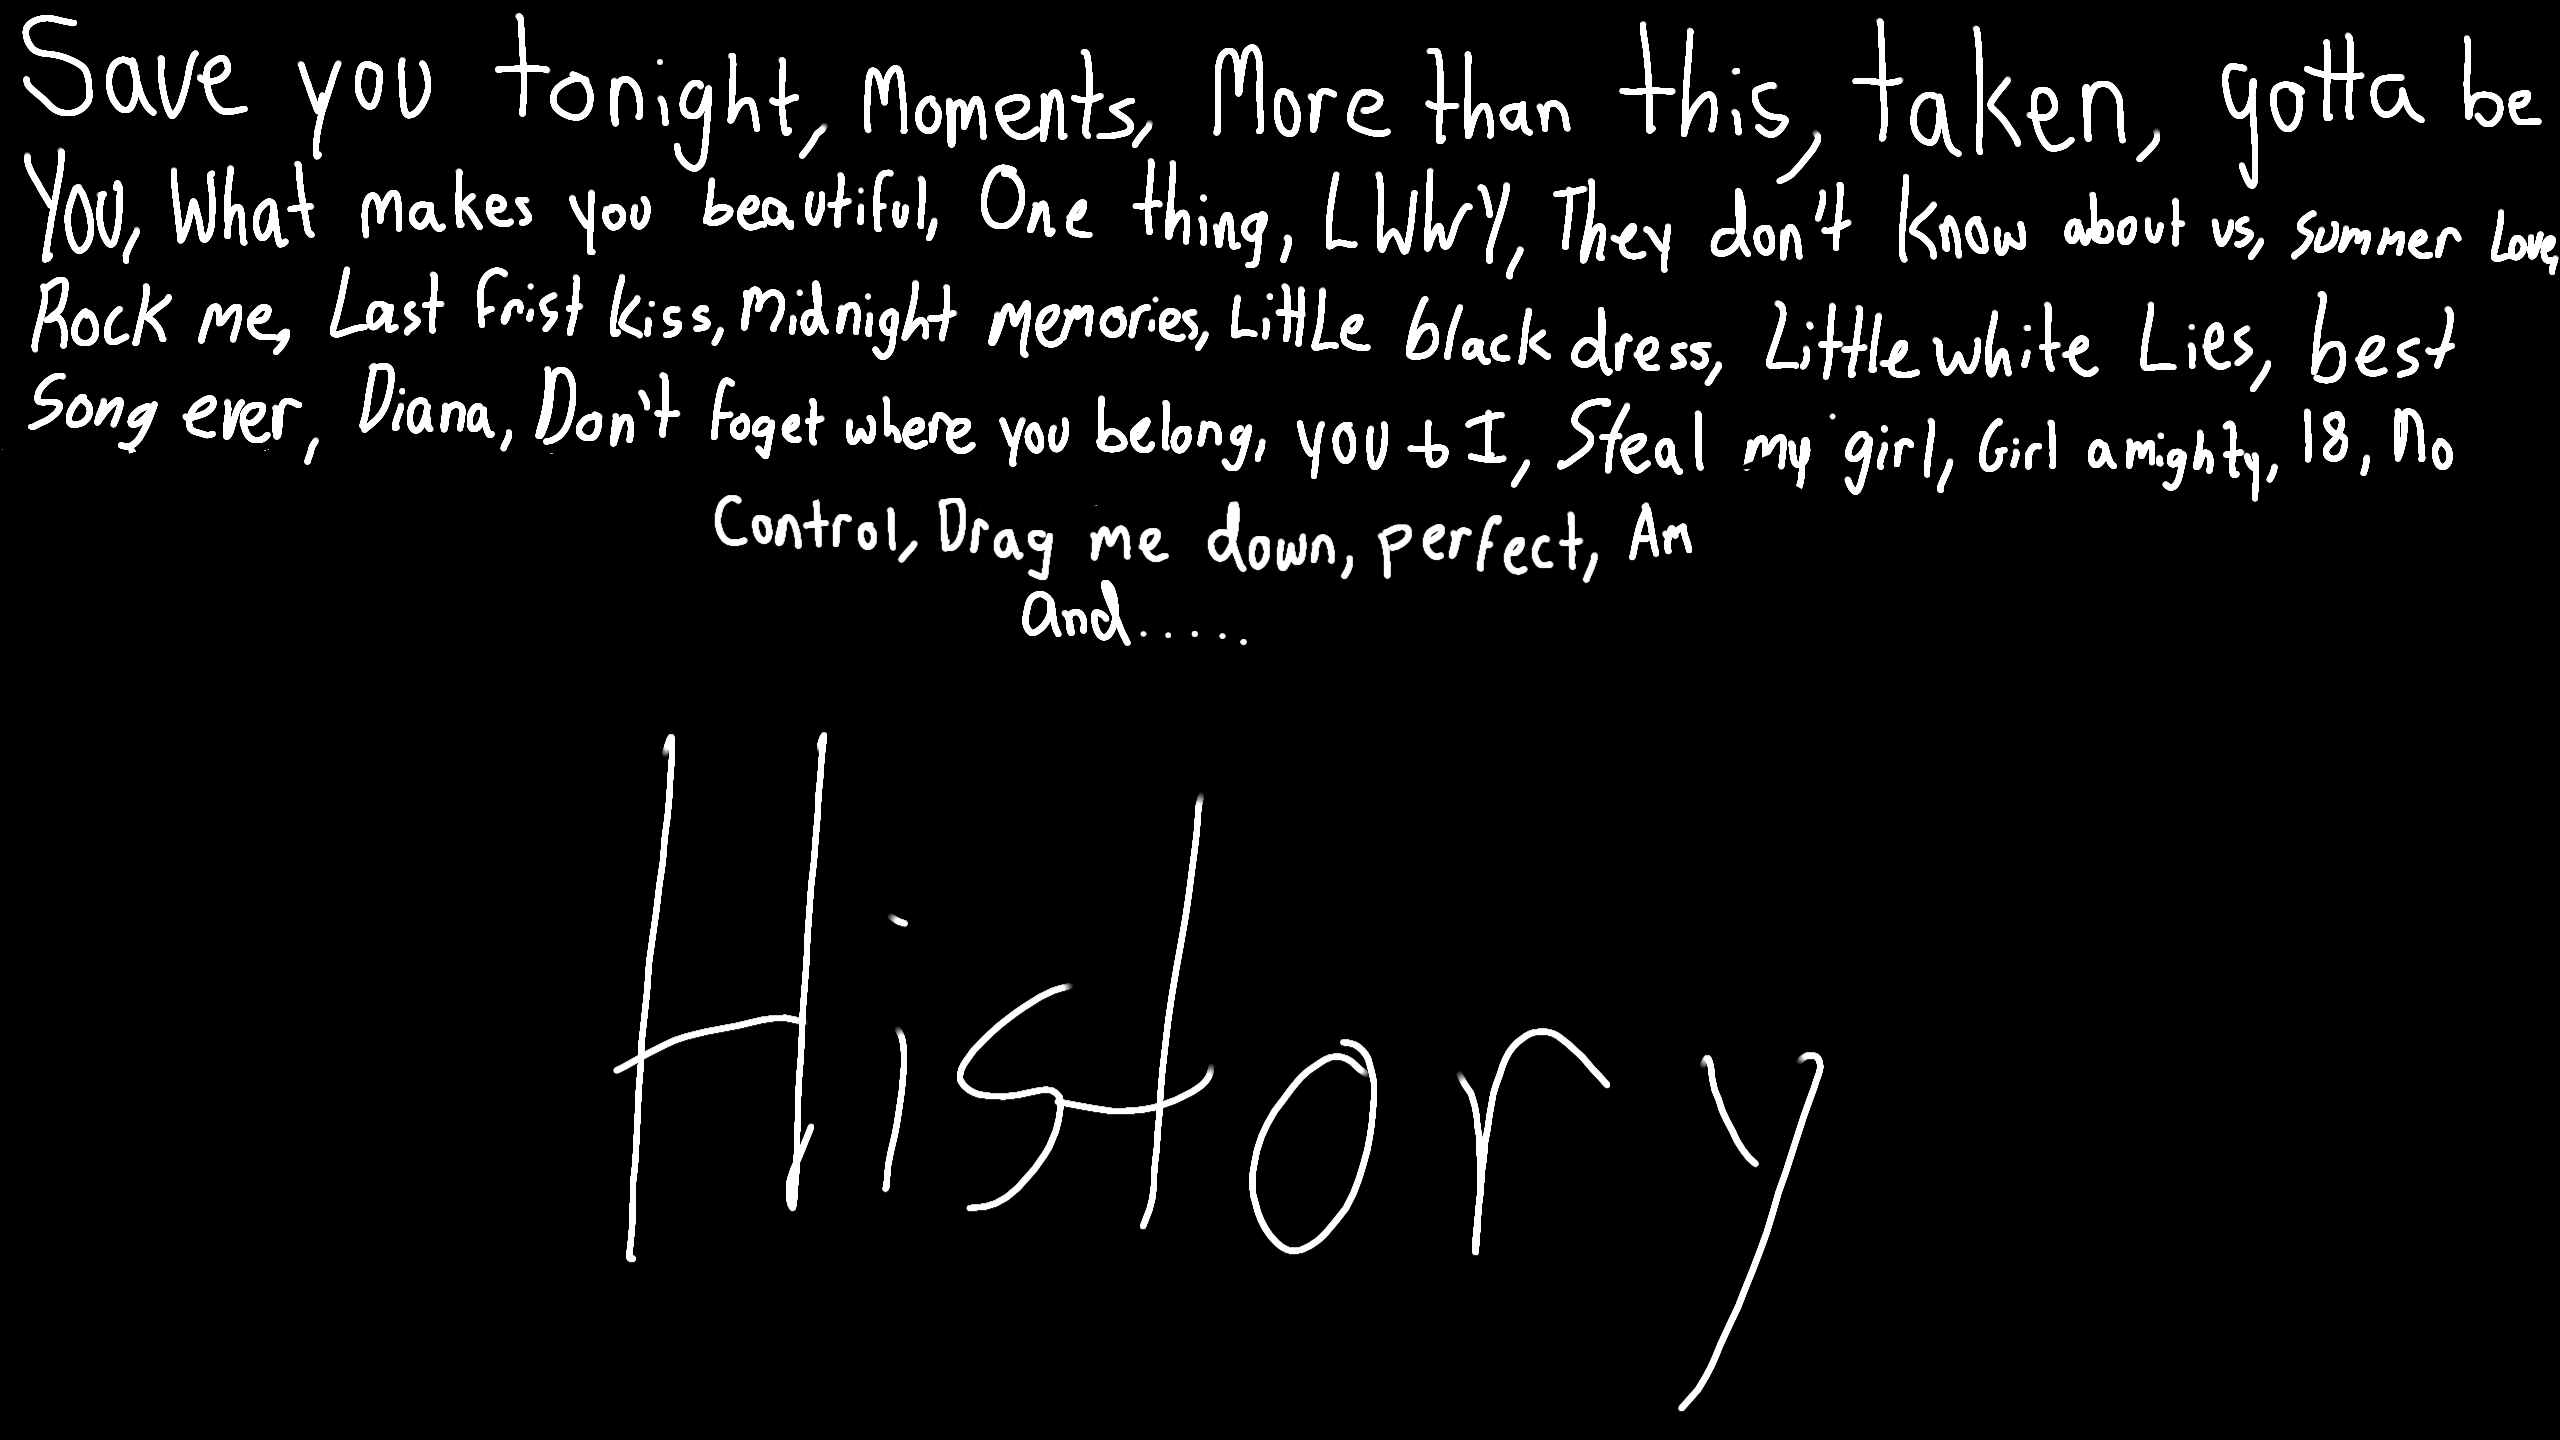 Save you tonight, Moments, More than this, taken, gotta be
You, What makes you beautiful, One thing, LWWY, They don't know about us, summer Love,
Rock me, Last frist kiss, Midnight memories, Little black dress, Little white Lies, best
Song ever, Diana, Don't foget where you belong, you & I, Steal my girl, Girl amighty, 18, No
Control, Drag me down, perfect, Am
and.....
History